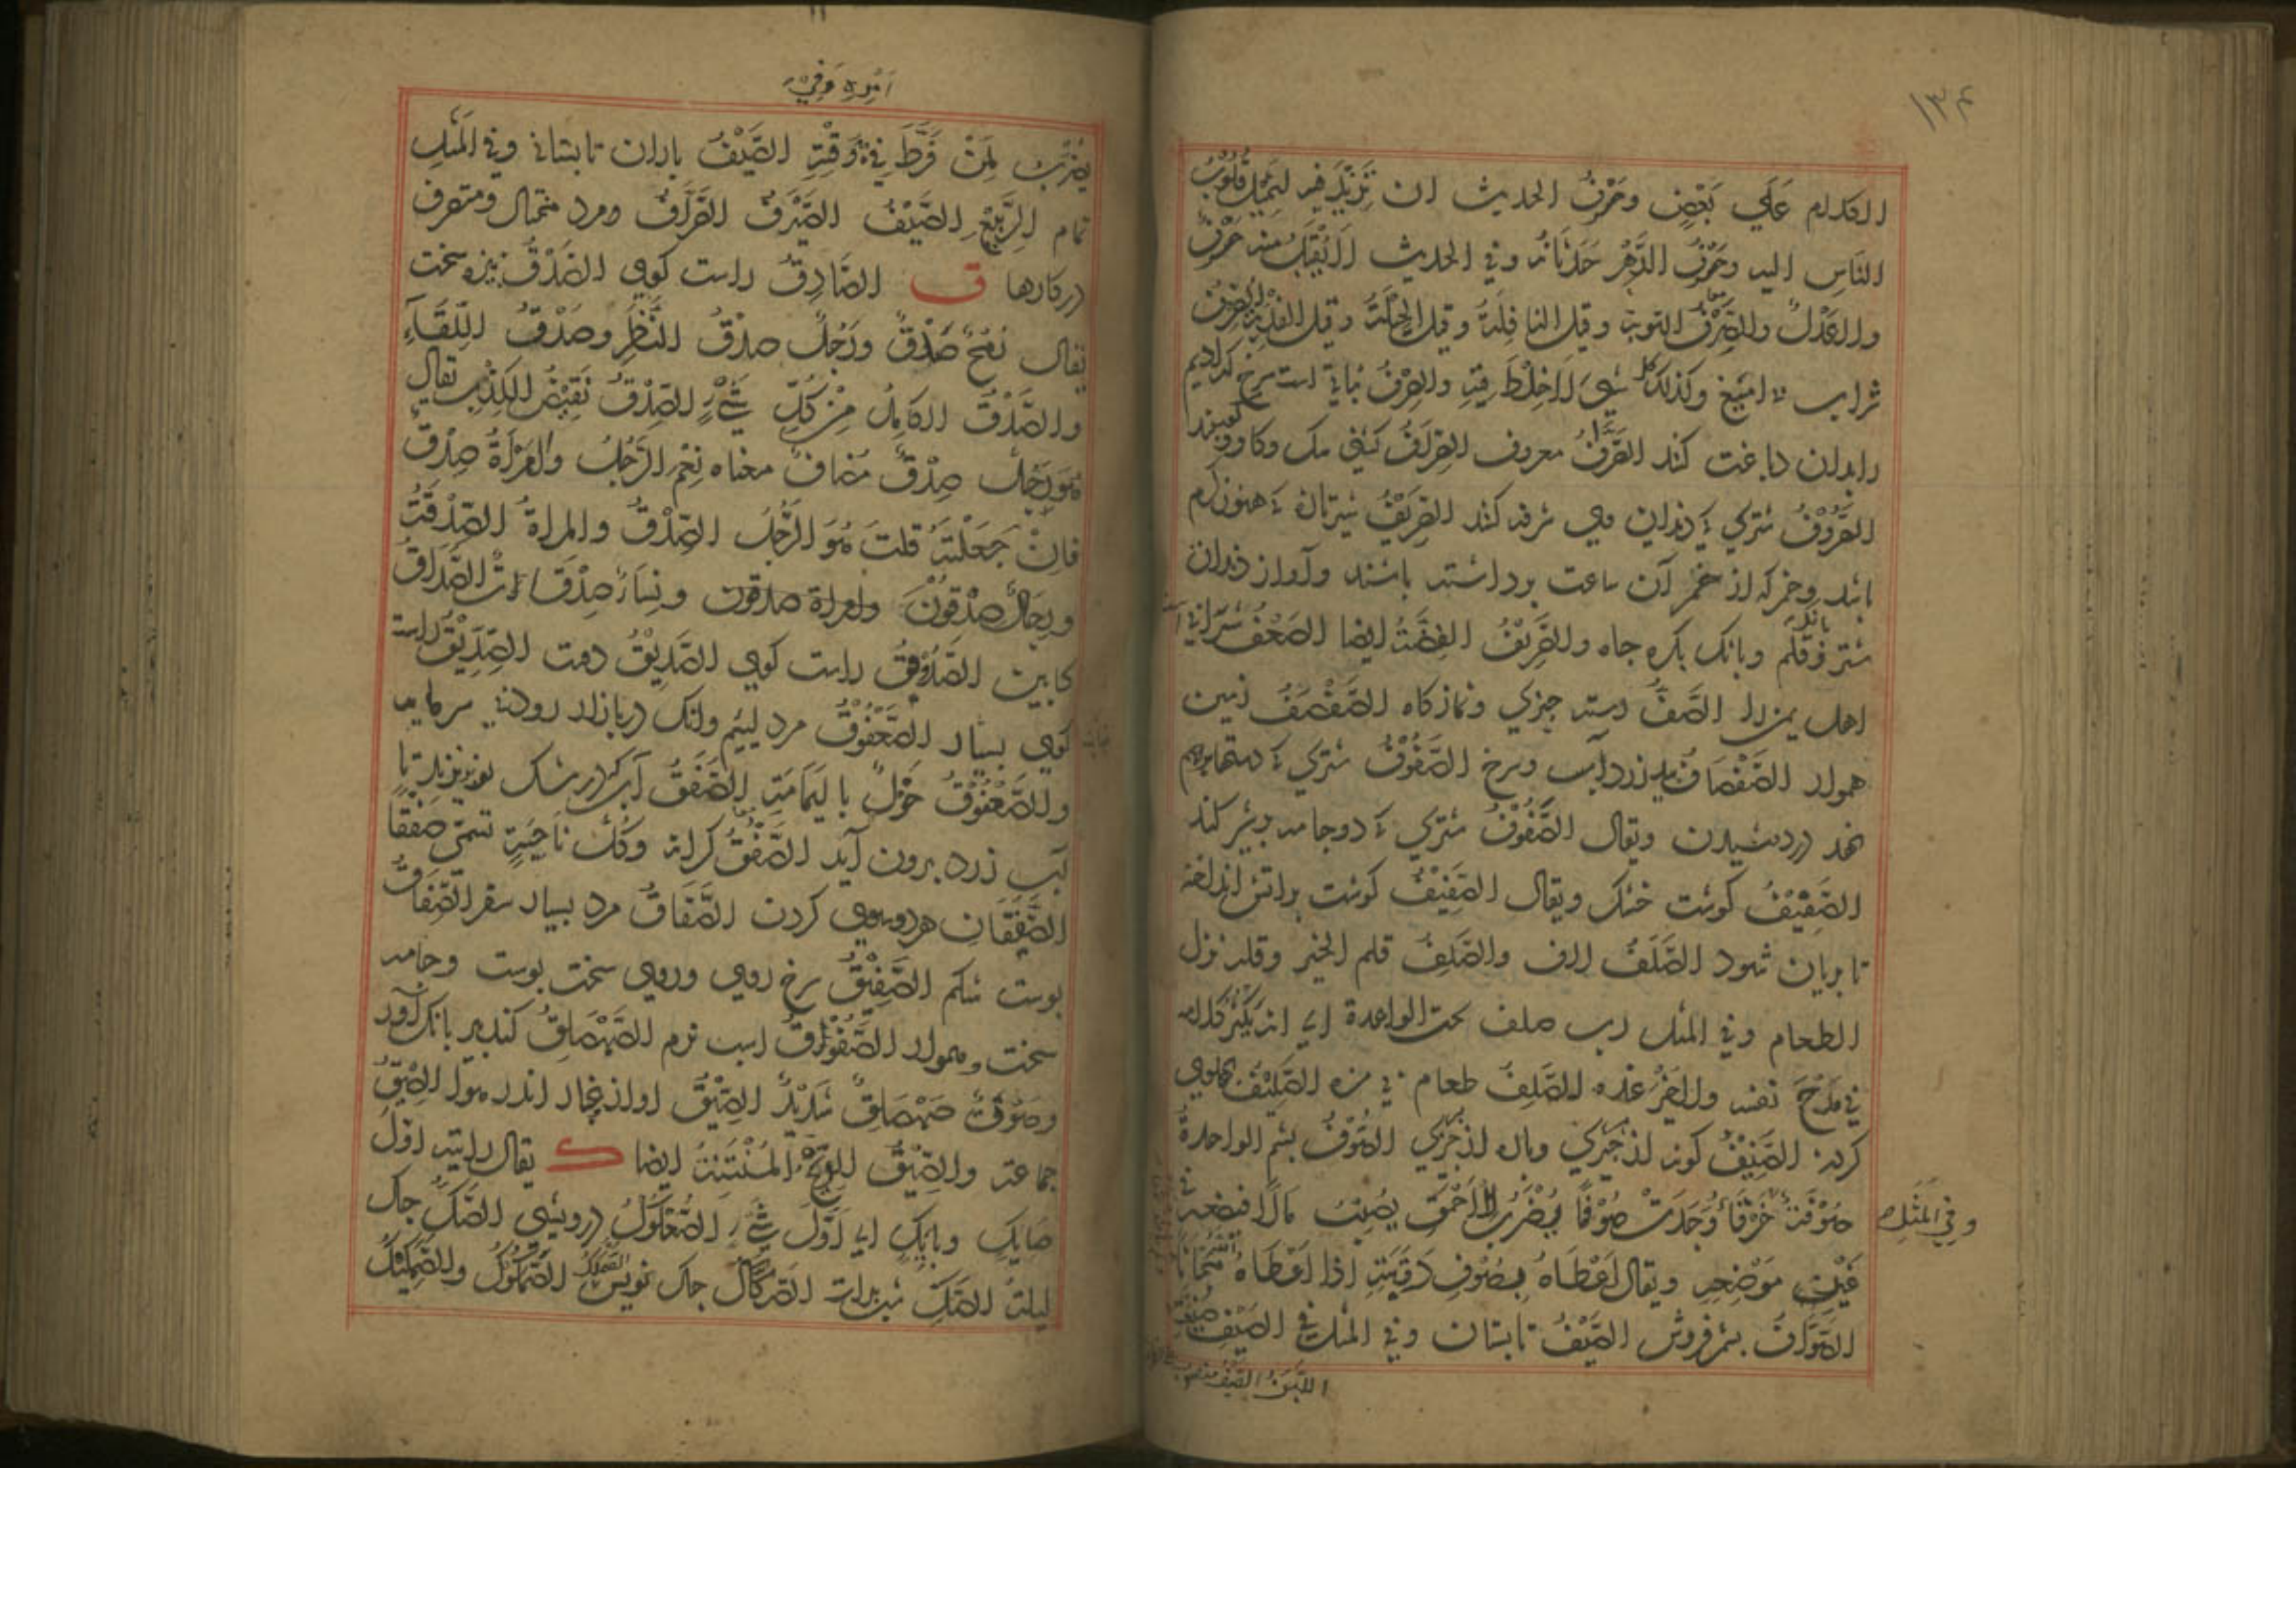 ۱۳۴
الكلام عَلَي بَعْضٍ وصَرْفُ الحديث ان تَزِيْدَ فيه لتميل قُلُوبُ
النَاسِ اليه وصَرْفُ الدَّهْرِ حَدَثَانُهُ وفي الحديث لا يُقْبَلُ منه صَرْفٌ
ولا عَدْلٌ والصَّرْفُ التوبة وقيل النافِلَةُ وقيل الحِيْلَةُ وقيل الفدية الصِرْفُ
شراب نا اميغ وكذلك كل شيء لا خِلْطَ فيه والصِرْفُ نباتي است سرخ كه اديم
را بدان دباغت كنند الصَّرَّافُ معروف الصِرَافُ كشني سك وكاو وكوسپند
الصَّرُوْفُ شتري كه دندان وي صرفه كند الصَّرِيْفُ شير تازه كه هنوز كرم
باشد وخمر كه از خم آن ساعت برداشته باشند وآواز دندان
شتر وقلم وبانك بكره جاه والصَّرِيْفُ الفِضَّةُ ايضا الصَعْفُ شرابي
اهل يمن را الصَّفُّ رسته جيزي ونمازكاه الصَّفْصَفُ زمين
هموار الصَّفْصَافُ بيد زرد آب وسرخ الصَّفُوْفُ شتري كه دستها بهم
نهد در دوشيدن ويقال الصَّفُوْفُ شتري كه دو جامه بشير كند
الصَّفِيْفُ كوشت خشك ويقال الصَّفِيْفُ كوشت بر اتش انداخته
تا بريان شود الصَّلَفُ لاف والصَّلَفُ قلة الخير وقلة نزل
الطعام وفي المثل رب صلف تحت الراعدة اي انه يكثر كلامه
في مَدْحِ نفسه ولا خَيْرَ عنده الصَّلِفُ طعام بي مزه الصَّلِيْفُ بهلوي
كردن الصِّنْفُ كونه از جيزي وباره از جيزي الصُّوْفُ بشم الواحدة
صُوْفَة خَرْقَاءُ وَجَدَتْ صُوْفًا يُضْرَبُ للاَحْمَقِ يُصِيْبُ مَالًا فيضعه في
وفي المَثَلِ
غَيْرِ مَوْضِعِهِ ويقال اَعْطَاهُ بِصُوْفِ رَقَبَتِهِ اذا اَعْطَاهُ مَجَّانًا
الصَّوَّافُ بشم فروش الصَّيْفُ تابستان وفي المثل في الصَيْفِ ضَيَّعْتِ
اللَّبَنَ الصَّيْفُ منصوب
اَمْرِهِ وَفِيْ
يُضْرَبُ لِمَنْ فَرَّطَ في وَقْتِهِ الصَّيِّفُ باران تابستاني وفي المَثَلِ
تمام الرَّبِيْعِ الصَّيْفُ الصَّيْرَفُ الصَّرَّافُ ومرد محتال ومتصرف
در كارها ق الصَّادِقُ راست كوي الصَّدْقُ نيزه سخت
يقال رُمْحٌ صَدْقٌ ورَجُلٌ صَدْقُ النَّظَرِ وصَدْقُ اللِّقَاءِ
والصَّدْقُ الكامِلُ مِنْ كُلِّ شَيْءٍ الصِدْقُ نَقِيْضُ الكِذْبِ يقال
هُوَ رَجُلُ صِدْقٍ مُضافٌ معناه نِعْمَ الرَّجُلُ وامْرَأَةُ صِدْقٍ
فَاِنْ جَعَلْتَهُ قلتَ هُوَ الرَّجُلُ الصَّدْقُ والمراة الصَّدْقَةُ
ورِجَالٌ صَدْقُوْنَ وامراة صدقون ونِسَاءٌ صَدْقَات الصَّدَاقُ
كابين الصَّدُوْقُ راست كوي الصَّدِيْقُ دوست الصِّدِّيْقُ راست
كوي بسيار الصَّعْفُوْقُ مرد لئيم وانك در بازار رود بي سرمايه
والصَّعْفُوْقُ خَوَلٌ باليَمَامَةِ الصَّفَقُ آب كه در مشك نو ريزند تا
آب زرد برون آيد الصَّفْقُ كرانه وكُلُّ نَاحِيَةٍ تسمّى صَفْقًا
الصَّفْقَانِ هر دو سوي كردن الصَّفَّاقُ مرد بسيار سفر الصِّفَاقُ
بوست شكم الصَّفِيْقُ سرخ روي وروي سخت بوست وجامه
سخت وهموار اسب نرم الصَّهْصَلِقُ كنده پير بانك آور
وصَوْتٌ صَهْصَلِقٌ شَدِيْدٌ الصِّيْقُ اول غبار اندر هوا الصِّيْقُ
جماعة والصِّيْقُ الرِّيْحُ المُنْتَنَةُ ايضا ك يقال راَيته اَوَّلَ
صايِكٍ وبايِكٍ اي اَوَّلَ شَيْءٍ الصُّعْلُوْكُ درويش الصَّكُّ جك
ليلة الصَّكِّ شب برات الصَّكَّاكُ جك نويس الصَّمَكُوْكُ والصَّمَكِيْكُ